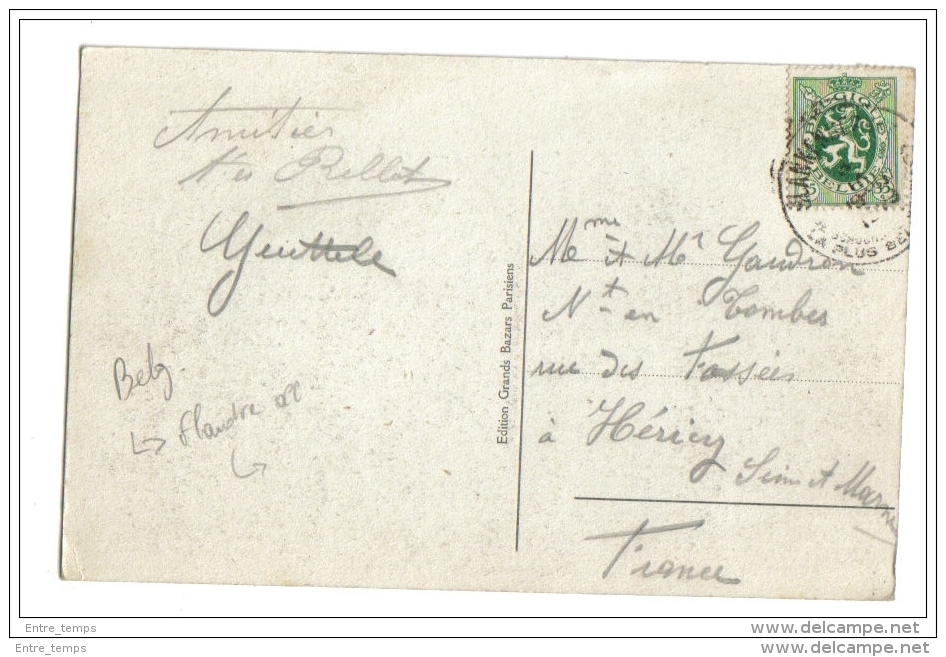 Amitiés
Rellot
BELGIQUE
BELGIË
35
35
BLANK
LA PLUS BEL
Mme et Mr Gaudron
Nt en Tombes
rue des Fossées
à Héricy
Seine et Marne
France
Edition Grands Bazars Parisiens
Belg
↳ Flandre occ
Entre_temps
www.delcampe.net
Entre_temps
www.delcampe.net